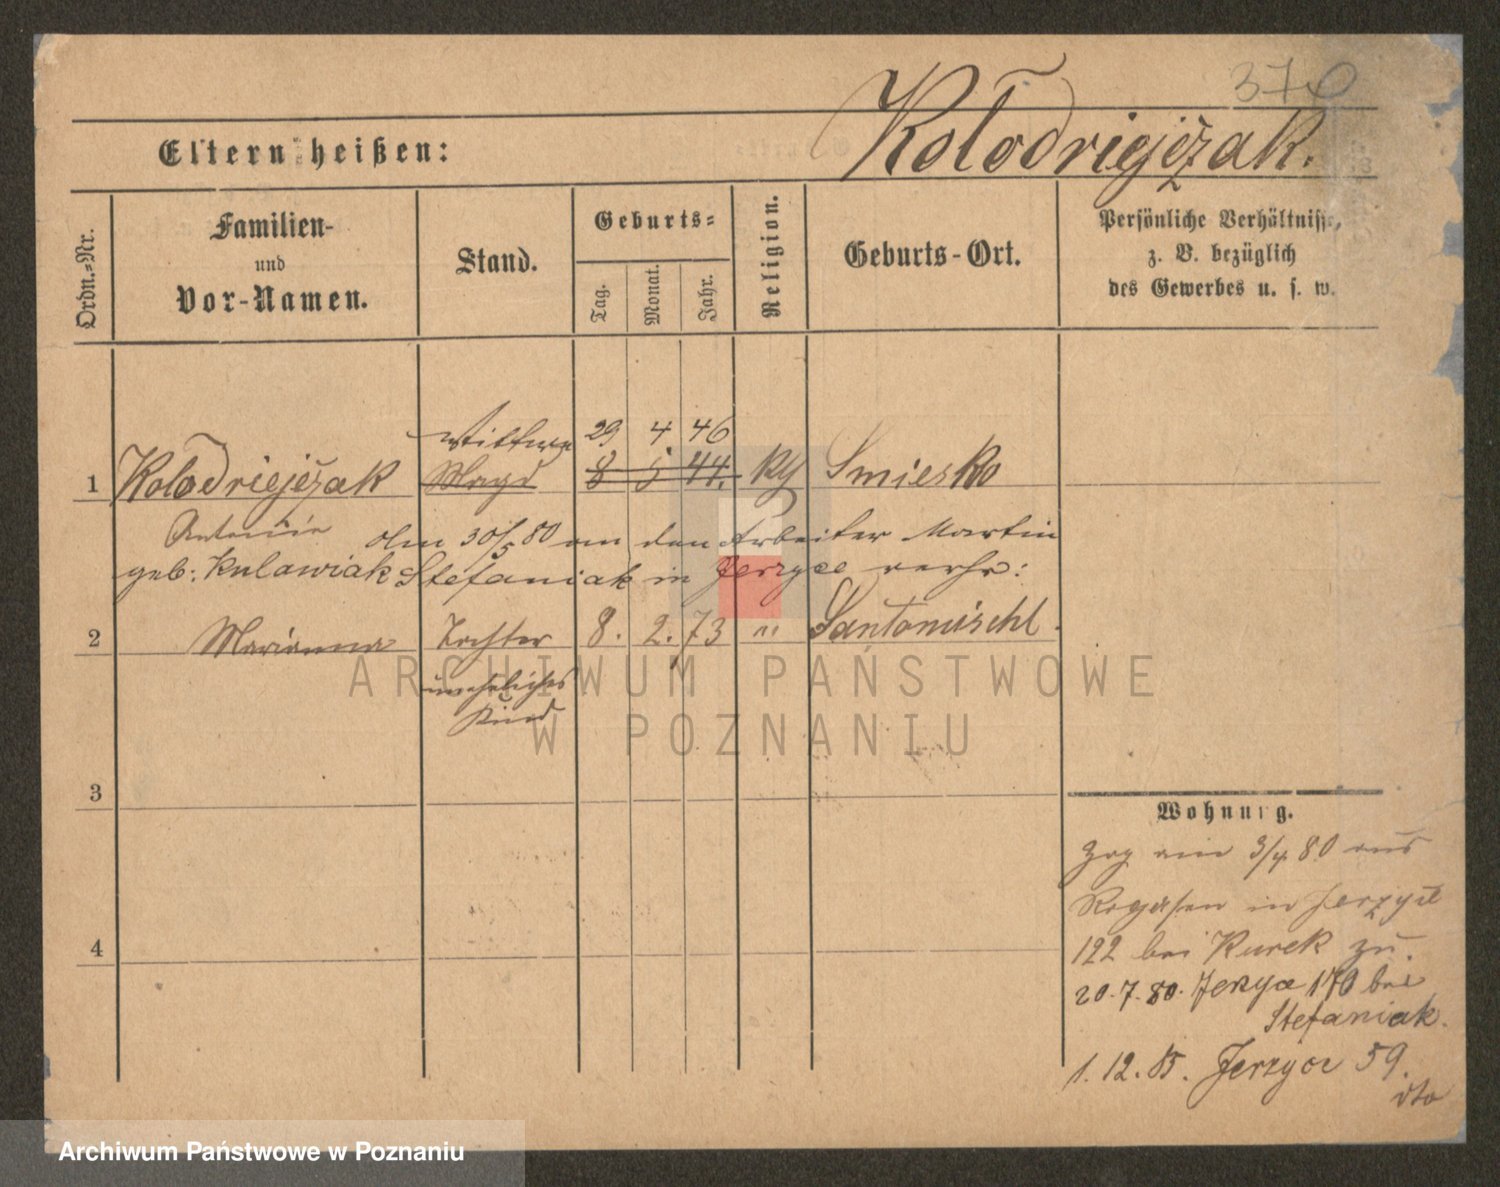 376
Kołodziejczak.
Eltern heißen:
Ordn.-Nr.
Familien-
und
Vor-Namen.
Stand.
Geburts-
Tag.
Monat.
Jahr.
Religion.
Geburts-Ort.
Persönliche Verhältnisse,
z. B. bezüglich
des Gewerbes u. s. w.
Wittwe 29 4 46
1 Kołodziejczak Magd 8 5 44. Smiesko
Antonie Am 30/5 80 an den Arbeiter Martin
geb: Kulawiak Stefaniak in Jerzyce verhr:
2 Marianna Tochter 8. 2. 73 " Santomischl.
uneheliches
Kind
3
4
Wohnung.
Zog am 3/4 80 aus
Rogasen in Jerzyce
122 bei Kurek zu.
20.7.80. Jerzyce 170 bei
Stefaniak.
1.12.85. Jerzyce 59.
dto
ARCHIWUM PAŃSTWOWE
W POZNANIU
Archiwum Państwowe w Poznaniu